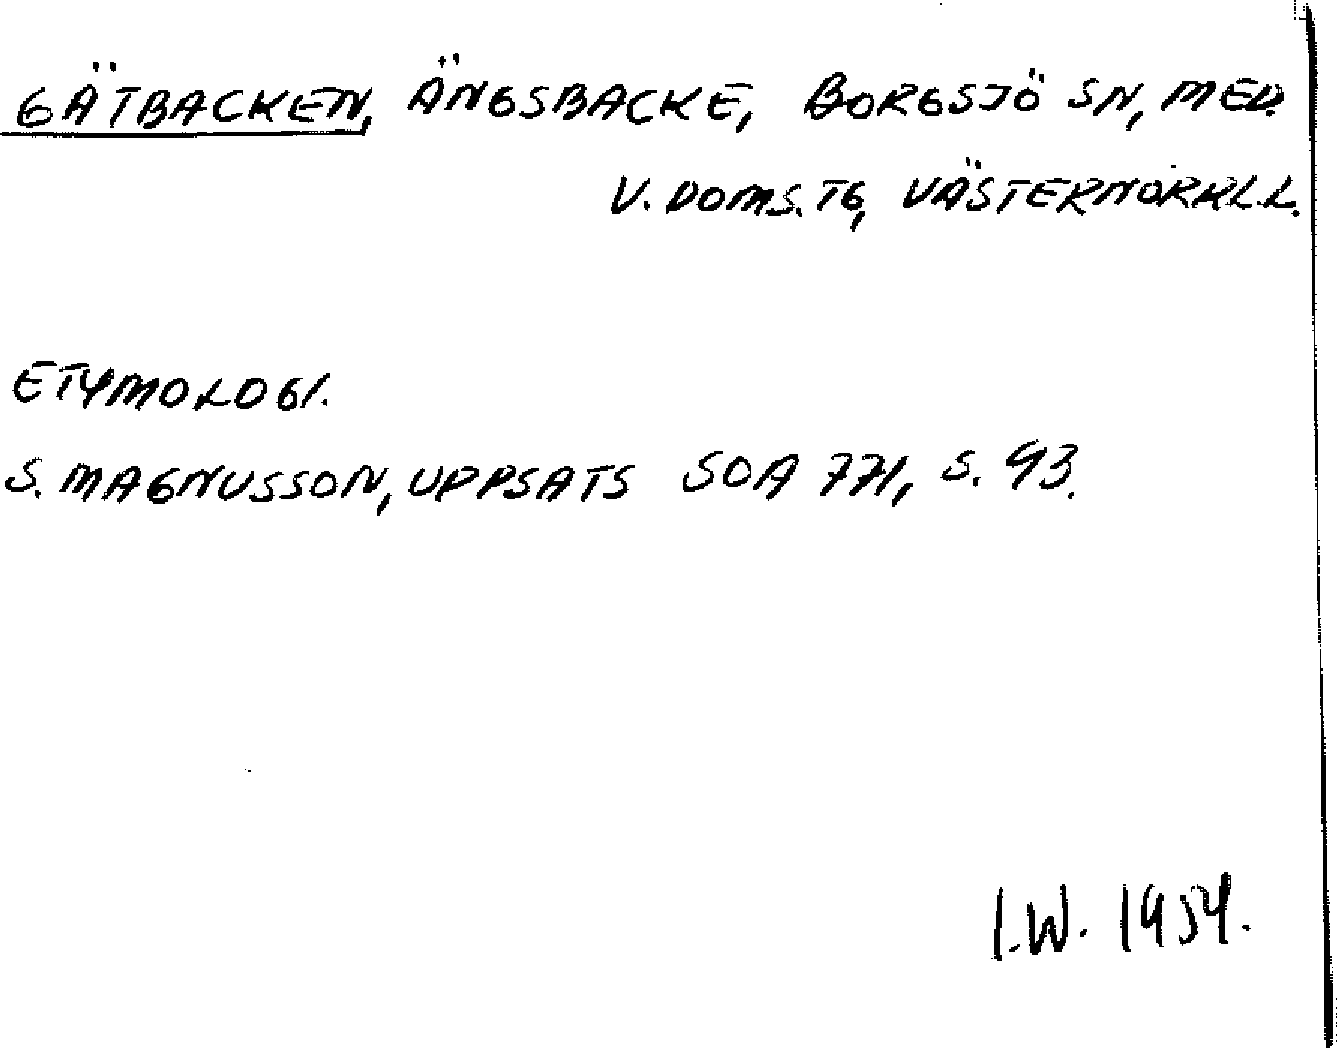 GÄTBACKEN, ÄNGSBACKE, BORGSJÖ SN, MED.
V. DOMS. TG, VÄSTERNORRL.L.
ETYMOLOGI.
S. MAGNUSSON, UPPSATS SOA 771, S. 43.
I.W. 1954.